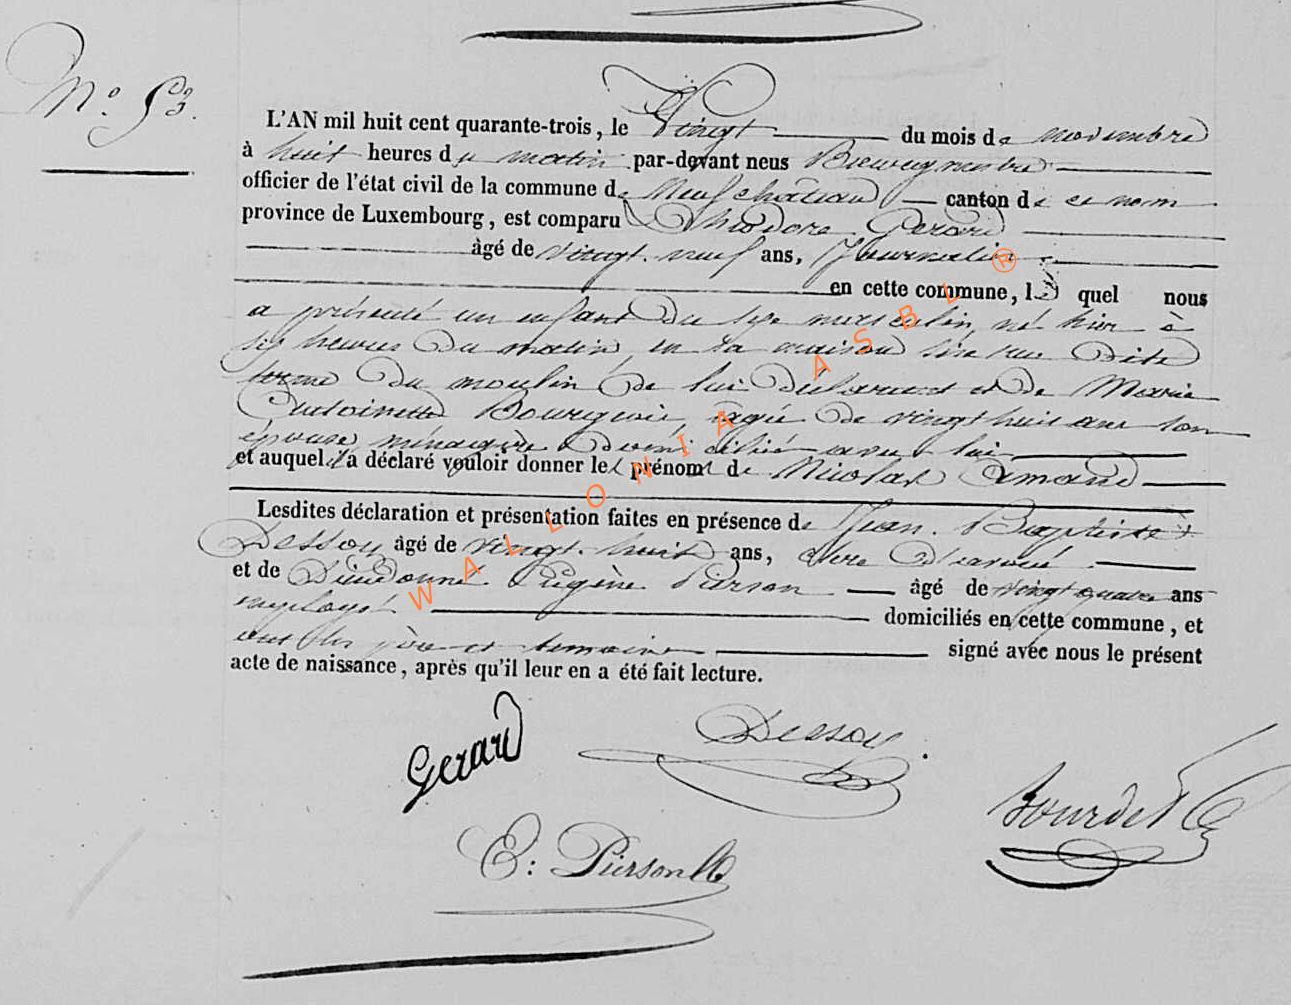 N.º 53.
L'AN mil huit cent quarante-trois, le Vingt du mois de novembre
à huit heures du matin par-devant nous Bourgmestre
officier de l'état civil de la commune de Neufchateau canton de ce nom
province de Luxembourg, est comparu Théodore Gerard
âgé de vingt neuf ans, Journalier
en cette commune, le quel nous
a présenté un enfant du sexe masculin, né hier à
six heures du matin, en sa maison sise rue dite
du moulin de lui déclarant et de Marie
Antoinette Bourguin, agée de vingt huit ans son
épouse ménagère domiciliée avec lui
et auquel il a déclaré vouloir donner les prénoms de Nicolas Armand
Lesdites déclaration et présentation faites en présence de Jean Baptiste
Dessoy âgé de vingt huit ans,
et de Dieudonné Eugène Pierson âgé de vingt quatre ans
employé domiciliés en cette commune, et
ont les père et témoins signé avec nous le présent
acte de naissance, après qu'il leur en a été fait lecture.
Gerard
Dessoy
Bourdet
E: Pierson
WALLONIA ASBL ®